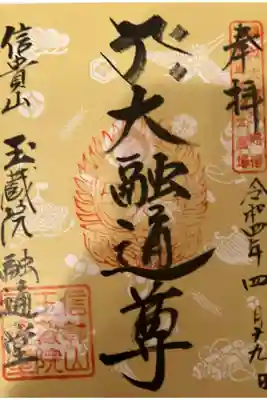 奉拝
令和四年四月十九日
大融通尊
信貴山
玉蔵院融通堂
信貴山
玉蔵院